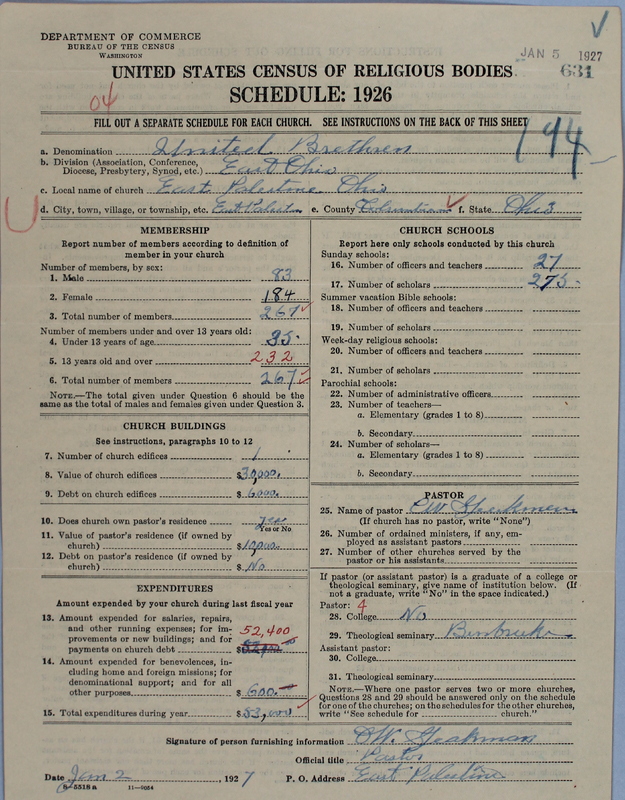 DEPARTMENT OF COMMERCE
BUREAU OF THE CENSUS
WASHINGTON
JAN 5 1927
631
UNITED STATES CENSUS OF RELIGIOUS BODIES
SCHEDULE: 1926
04
FILL OUT A SEPARATE SCHEDULE FOR EACH CHURCH. SEE INSTRUCTIONS ON THE BACK OF THIS SHEET
194
a. Denomination United Brethren
b. Division (Association, Conference, Diocese, Presbytery, Synod, etc.) East Ohio
c. Local name of church East Palestine Ohio
d. City, town, village, or township, etc. East Palestine e. County Columbiana f. State Ohio
MEMBERSHIP
Report number of members according to definition of
member in your church
Number of members, by sex:
1. Male 83
2. Female 184
3. Total number of members 267
Number of members under and over 13 years old:
4. Under 13 years of age 35
5. 13 years old and over 232
6. Total number of members 267
NOTE.—The total given under Question 6 should be
same as the total of males and females given under Question 3.
CHURCH BUILDINGS
See instructions, paragraphs 10 to 12
7. Number of church edifices 1
8. Value of church edifices $30,000.
9. Debt on church edifices $ 6000.
10. Does church own pastor's residence yes
Yes or No
11. Value of pastor's residence (if owned by
church) $10,000
12. Debt on pastor's residence (if owned by
church) $ No
EXPENDITURES
Amount expended by your church during last fiscal year
13. Amount expended for salaries, repairs,
and other running expenses; for im-
provements or new buildings; and for
payments on church debt $ 52,400
14. Amount expended for benevolences, in-
cluding home and foreign missions; for
denominational support; and for all
other purposes $ 600
15. Total expenditures during year $ 53,000
CHURCH SCHOOLS
Report here only schools conducted by this church
Sunday schools:
16. Number of officers and teachers 27
17. Number of scholars 275
Summer vacation Bible schools:
18. Number of officers and teachers
19. Number of scholars
Week-day religious schools:
20. Number of officers and teachers
21. Number of scholars
Parochial schools:
22. Number of administrative officers
23. Number of teachers—
a. Elementary (grades 1 to 8)
b. Secondary
24. Number of scholars—
a. Elementary (grades 1 to 8)
b. Secondary
PASTOR
25. Name of pastor
(If church has no pastor, write "None")
26. Number of ordained ministers, if any, em-
ployed as assistant pastors
27. Number of other churches served by the
pastor or his assistants
If pastor (or assistant pastor) is a graduate of a college or
theological seminary, give name of institution below. (If
not a graduate, write "No" in the space indicated.)
Pastor: 4
28. College No
29. Theological seminary
Assistant pastor:
30. College
31. Theological seminary
NOTE.—Where one pastor serves two or more churches,
Questions 28 and 29 should be answered only on the schedule
for one of the churches; on the schedules for the other churches,
write "See schedule for church."
Signature of person furnishing information
Official title Pastor
Date Jan 2, 1927 P. O. Address East Palestine
8-5518a 11-9054